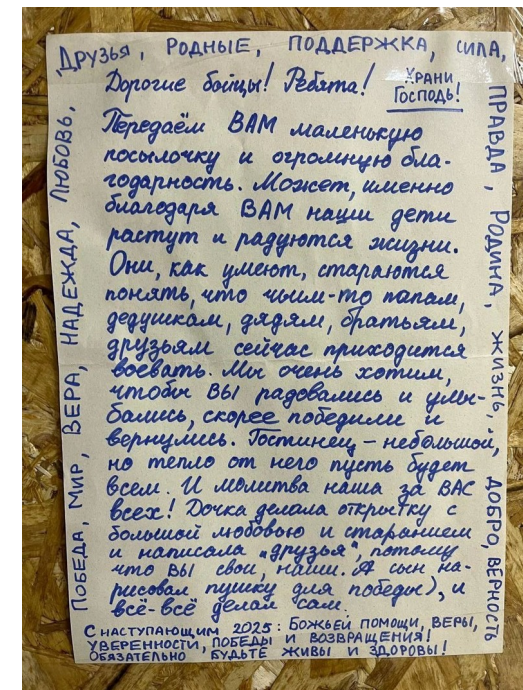 ПОБЕДА, МИР, ВЕРА, НАДЕЖДА, ЛЮБОВЬ,
ДРУЗЬЯ, РОДНЫЕ, ПОДДЕРЖКА, СИЛА,
ПРАВДА, РОДИНА, ЖИЗНЬ, ДОБРО, ВЕРНОСТЬ
Дорогие бойцы! Ребята!
ХРАНИ
ГОСПОДЬ!
Передаём ВАМ маленькую
посылочку и огромную бла-
годарность. Может, именно
благодаря ВАМ наши дети
растут и радуются жизни.
Они, как умеют, стараются
понять, что чьим-то папам,
дедушкам, дядям, братьям,
друзьям сейчас приходится
воевать. Мы очень хотим,
чтобы ВЫ радовались и улы-
бались, скорее победили и
вернулись. Гостинец – небольшой,
но тепло от него пусть будет
всем. И молитва наша за ВАС
всех! Дочка делала открытку с
большой любовью и старанием
и написала „друзья", потому
что ВЫ свои, наши. А сын на-
рисовал пушку для победы), и
всё-всё делал сам.
С НАСТУПАЮЩИМ 2025: БОЖЬЕЙ ПОМОЩИ, ВЕРЫ,
УВЕРЕННОСТИ, ПОБЕДЫ И ВОЗВРАЩЕНИЯ!
ОБЯЗАТЕЛЬНО БУДЬТЕ ЖИВЫ И ЗДОРОВЫ!